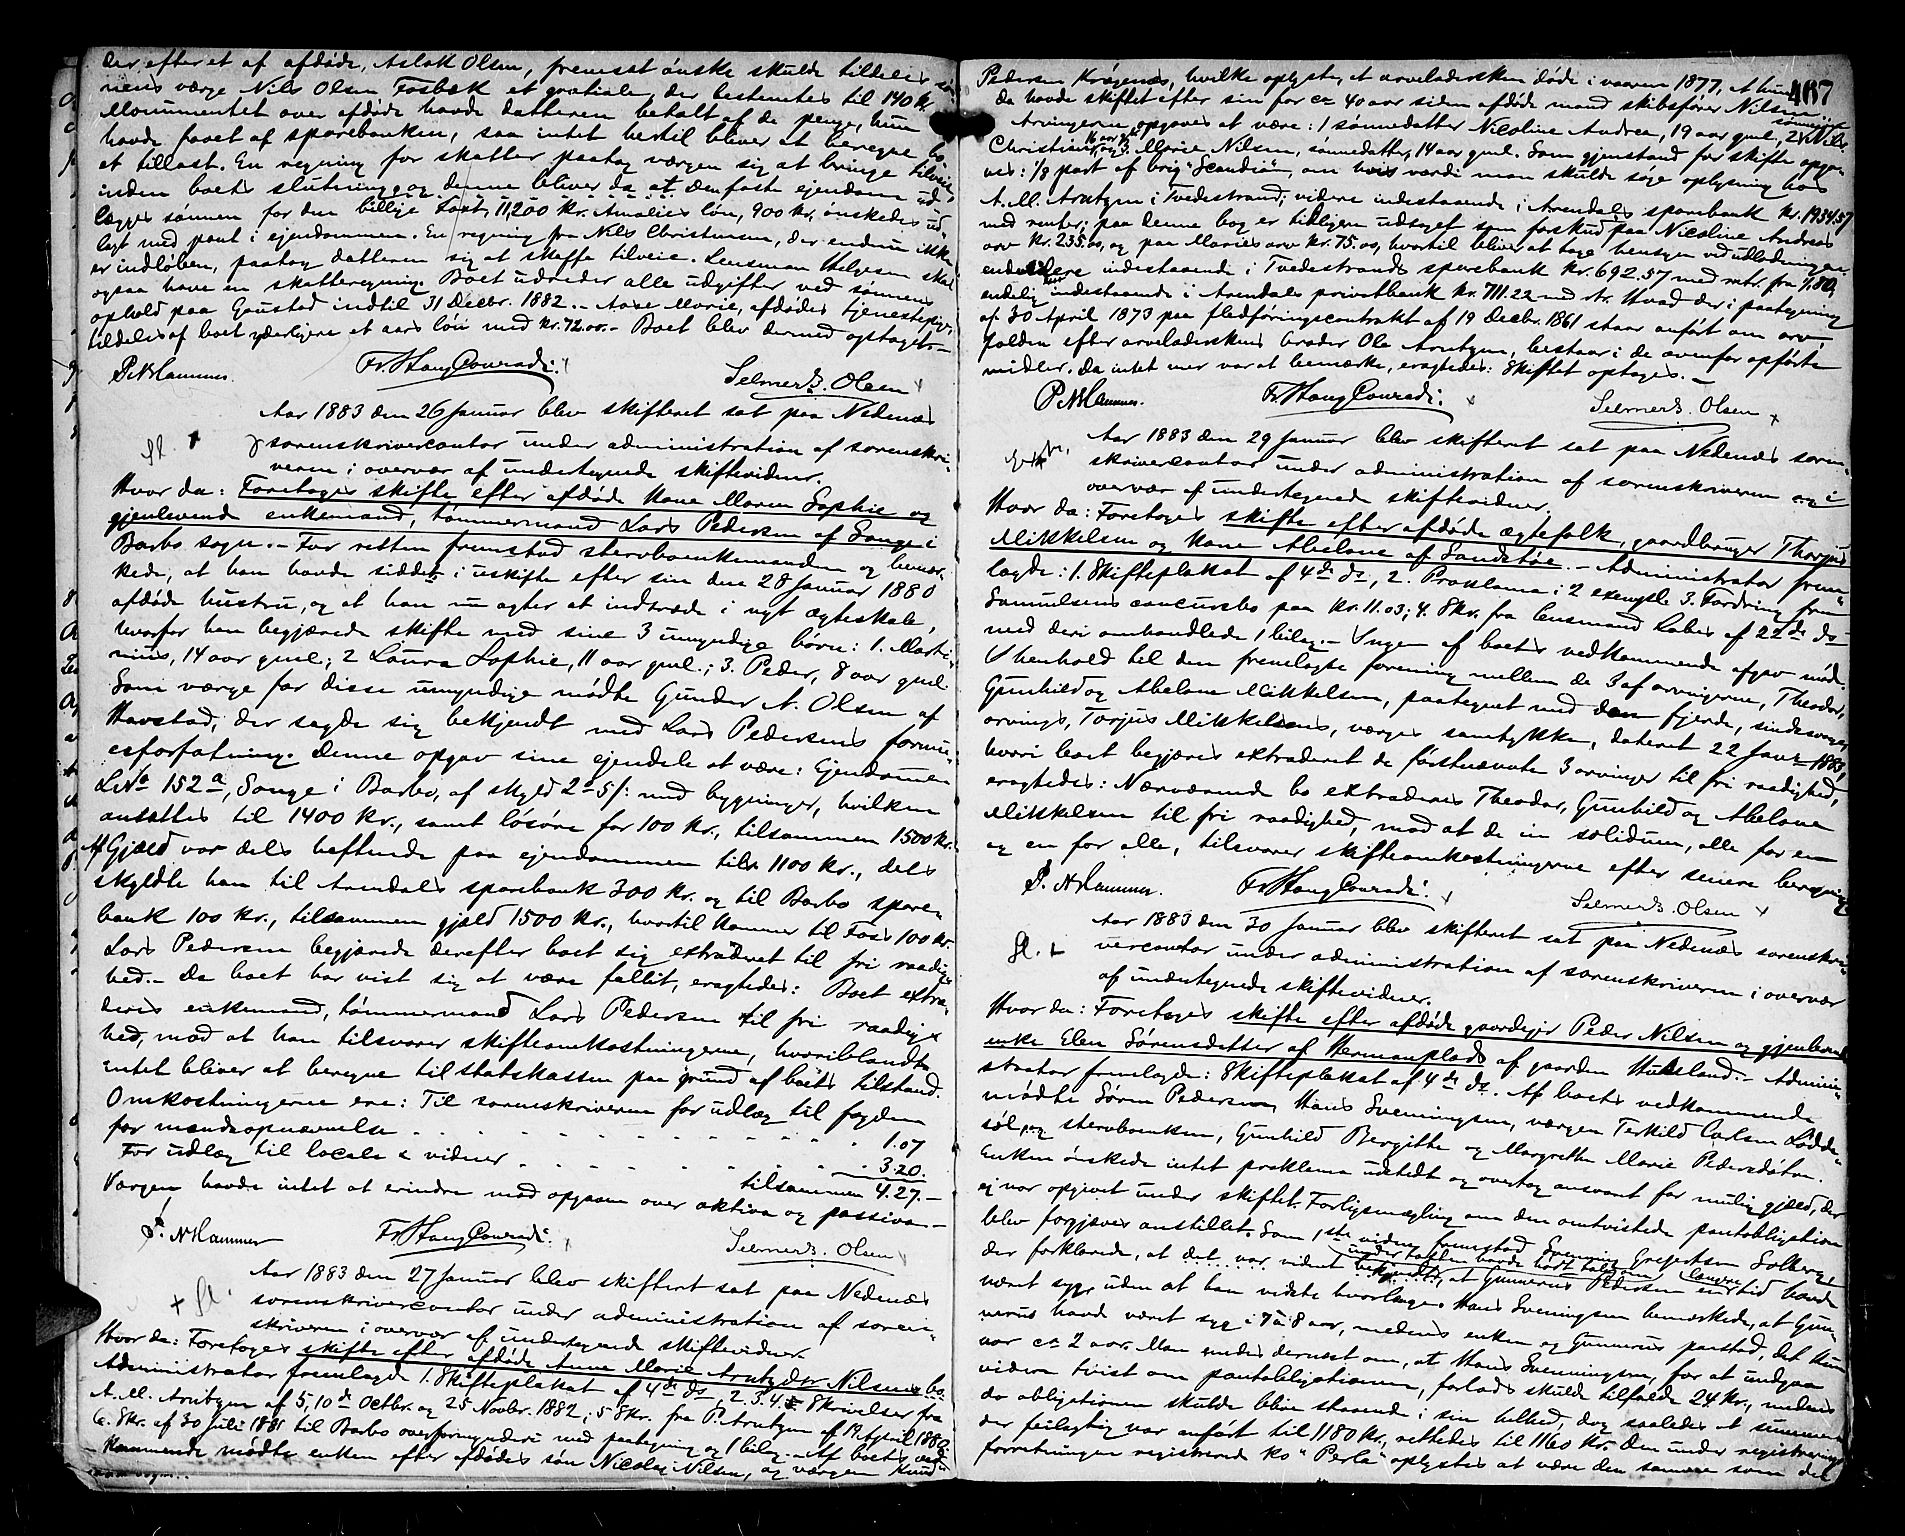 der efter et af afdøde, Aslak Olsen, fremsat ønske skulde tildeles
nens værge Nils Olsen Fosbæk et gratiale, der bestemtes til 140 kr
Monumentet over afdøde havde datteren betalt af de penge, hun
havde faaet af sparebanken, saa intet hertil bliver at beregne bo
et tillast. En regning for skatter paatog værgen sig at bringe tilveie
inden boets slutning og denne bliver da at den faste eiendom ud
lægges sønnen for den billige taxt, 11,200 kr. Amalies løn, 900 kr, ønskedes ud
lagt med pant i eiendommen. En regning fra Nils Christensen, der endnu ikke
er indløben, paatog datteren sig at skaffe tilveie. Lensmand Helgesen skal
ogsaa have en skatteregning. Boet udreder alle udgifter ved sønnens
ophold paa Gaustad indtil 31 Decbr. 1882. Aase Marie, afdødes tjenestepige,
tildeles af boet yderligere et aars løn med kr. 72.00. - Boet blev dermed optaget. -
P. N Hammer. Fr. Haug Conradi. Selmer B. Olsen
Aar 1883 den 26 Januar blev skifteret sat paa Nedenæs
fl. sorenskrivercontor under administration af sorenskri-
veren i overvær af undertegnede skiftevidner.
Hvor da: Foretoges skifte efter afdøde kone Maren Sophie og
gjenlevende enkemand, tømmermand Lars Pedersen af Songe i
Barbo sogn. - For retten fremstod stervboenkemanden og bemær-
kede, at han havde siddet i uskifte efter sin den 28 Januar 1880
afdøde hustru, og at han nu agter at indtræde i nyt ægteskab,
hvorfor han begjærede skifte med sine 3 umyndige børn: 1. Marti-
nius, 14 aar gml.; 2 Laura Sophie, 11 aar gml.; 3. Peder, 8 aar gml.
Som værge for disse umyndige mødte Gunder N. Olsen af
Havstad, der sagde sig bekjendt med Lars Pedersens formu-
esforfatning. Denne opgav sine eiendele at være: Eiendommen
L.No 152 a, Songe i Barbo, af skyld 2 5 /: med bygninger, hvilken
ansattes til 1400 kr., samt løsøre for 100 kr., tilsammen 1500 kr.
Af Gjæld var dels heftende paa eiendommen til 1100 kr., dels
skyldte han til Arendals sparebank 300 kr. og til Barbo spare-
bank 100 kr., tilsammen gjæld 1500 kr., hvortil kommer til Foss 100 kr.
Lars Pedersen begjærede derefter boet sig extraderet til fri raadig-
hed. - Da boet har vist sig at være fallit, eragtedes: Boet extra-
deres enkemand, tømmermand Lars Pedersen til fri raadig-
hed, mod at han tilsvarer skifteomkostningerne, hvoriblandt
intet bliver at beregne til statskassen paa grund af boets tilstand.
Omkostningerne ere: Til sorenskriveren for udlæg til fogden
for mændsopnævnelse . . . 1.07
For udlæg til locale & vidner . . . 3.20.
tilsammen 4.27. -
Værgen havde intet at erindre mod opgaven over aktiva og passiva. -
P. N Hammer Fr. Haug Conradi. Selmer B. Olsen
Aar 1883 den 27 Januar blev skifteret sat paa Nedenæs
+ fl. sorenskrivercontor under administration af soren-
skriveren i overvær af undertegnede skiftevidner.
Hvor da: Foretoges skifte efter afdøde Anne Marie Arntzdtr Nilsens bo.
Administrator fremlagde 1. Skifteplakat af 4de ds, 2. 3. 4. Skrivelser fra
A. M. Arntzen af 5, 10de Octbr. og 25 Novbr. 1882; 5 Skr. fra P. Arntzen af 12 April 1882
6. Skr. af 30 juli 1881 til Barbo overformynderi med paategning og 1 bilag. - Af boets ved-
kommende mødte enken efter afdødes søn Nicolai Nilsen, og værgen Knud
467
Pedersen Krøgenæs, hvilke oplyste, at arveladersken døde i vaaren 1877, at hun
da havde skiftet efter sin for ca 40 aar siden afdøde mand skibsfører Nilsen
Arvingerne opgaves at være: 1 sønnedatter Nicoline Andrea, 19 aar gml., 2 sønnesøn Nils
Christian, 16 aar og 3. Marie Nilsen, sønnedatter, 14 aar gml. Som gjenstand for skifte opga-
ves: 1/8 part af brig "Scandia", om hvis værdi man skulde søge oplysning hos
A. M. Arntzen i Tvedestrand; videre indestaaende i Arendals sparebank kr. 1934.57
med renter; paa denne bog er tidligere udtaget som forskud paa Nicoline Andreas
arv kr. 235.00, og paa Maries arv kr. 75.00, hvortil bliver at tage hensyn ved udlodningen
endvidere indestaaende i Tvedestrands sparebank kr. 692.57 med rtr. fra
endelig indestaaende i Arendals privatbank kr. 711.22 med rtr. Hvad der i paategning
af 30 April 1873 paa fledføringscontrakt af 19 Decbr. 1861 staar anført om arv
falden efter arveladerskens broder Ole Arntzen, bestaar i de ovenfor opførte
midler. Da intet mer var at bemærke, eragtedes: Skiftet optages. -
P. N Hammer. Fr. Haug Conradi. Selmer B. Olsen
Aar 1883 den 29 Januar blev skifteret sat paa Nedenæs soren-
skrivercontor under administration af sorenskriveren og i
overvær af undertegnede skiftevidner.
Hvor da: Foretoges skifte efter afdøde ægtefolk, gaardbruger Thorjus
Mikkelsen og kone Abelone af Sandstøe. - Administrator frem-
lagde: 1. Skifteplakat af 4de ds, 2. Proklama i 2 exempl. 3. Fordring fra
Samuelsens concursbo paa kr. 11.03; 4. Skr. fra lensmand Labes af 22de ds
med deri omhandlede 1 bilag. - Ingen af boets vedkommende afgav møde.
I henhold til den fremlagte forening mellem de 3 af arvingerne, Theodor,
Gunhild og Abelone Mikkelsen, paategnet med den fjerde, sindssvage
arvings, Torjus Mikkelsens, værges samtykke, dateret 22 Januar 1883,
hvori boet begjæres extraderet de førstnævnte 3 arvinger til fri raadighed,
eragtedes: Nærværende bo extraderes Theodor, Gunhild og Abelone
Mikkelsen til fri raadighed, mod at de in solidum, alle for en
og en for alle, tilsvarer skifteomkostningerne efter senere beregning
P. N Hammer. Fr. Haug Conradi. Selmer B. Olsen
Aar 1883 den 30 Januar blev skifteret sat paa Nedenæs sorenskri-
fl. vercontor under administration af sorenskriveren i overvær
af undertegnede skiftevidner.
Hvor da: Foretoges skifte efter afdøde gaardeier Peder Nilsen og gjenlevende
enke Elen Sørensdatter af Hermansplads af gaarden Huusland. - Admini-
strator fremlagde: Skifteplakat af 4de ds. Af boets vedkommende
mødte Søren Pedersen, Hans Evensen, værgen Terkild Carlsen Lødde-
søl, og stervboenken, Gunhild Bergithe og Margrethe Marie Pedersdøtre.
Enken ønskede intet proklama udstedt og overtog ansvaret for mulig gjæld, der
ei var opgivet under skiftet. Forligsmægling om den omtvistede pantobligation
blev forgjæves anstillet. Som 1ste vidne fremstod Svenning Gregertsen Solberg,
der forklarede, at det var vidnet bekjendt, at Gunnerus Pedersen en længre tid havde
været syg, uden at han vidste hvorlænge. Hans Svenningsen bemærkede, at Gun-
nerus havde været syg i 7 à 8 aar, medens enken og Gunnerus paastod, det kun
var ca 2 aar. Man enedes dernæst om, at Hans Svenningsen, for at undgaa
videre tvist om pantobligationen, forlods skulde tilfalde 24 kr., medens
da obligationen skulde blive staaende i sin helhed, dog saaledes at summen
der feilagtig var anført til 1180 kr., rettedes til 1160 kr. Den under registrerings-
forretningen registrerede ko "Perla" oplystes at være den samme som det